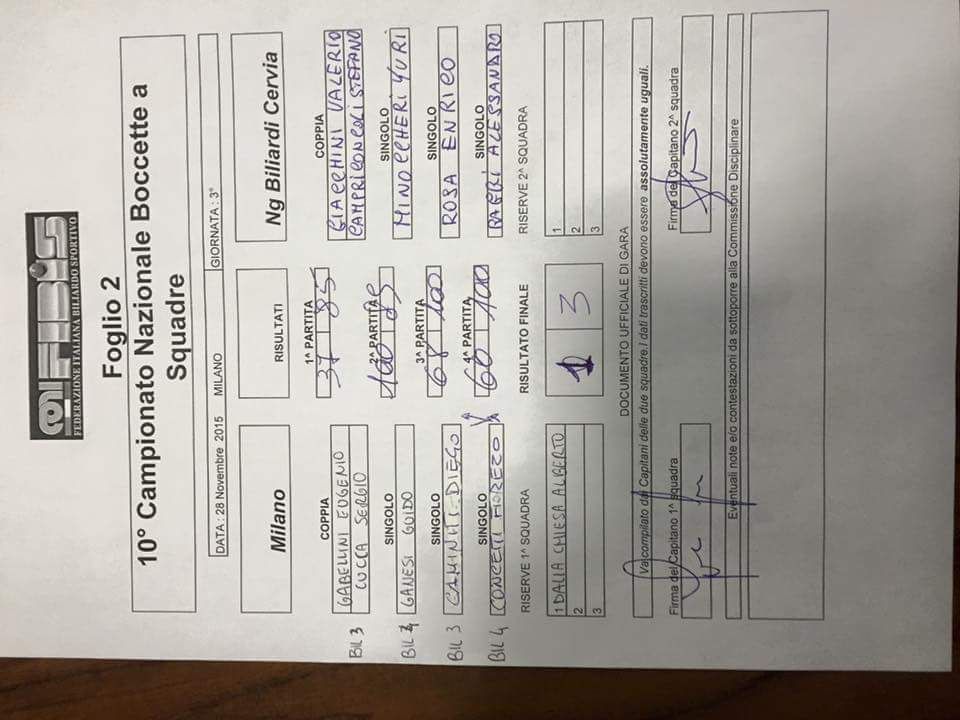 FISBIS
FEDERAZIONE ITALIANA BILIARDO SPORTIVO
Foglio 2
10° Campionato Nazionale Boccette a
Squadre
DATA : 28 Novembre 2015 MILANO GIORNATA : 3°
Milano RISULTATI Ng Biliardi Cervia
COPPIA 1^ PARTITA COPPIA
BIL 3 GABELLINI EUGENIO 37 85 GIACCHINI VALERIO
LUCCA SERGIO CAMPRICONCOLI STEFANO
SINGOLO 2^ PARTITA SINGOLO
BIL 4 GANESI GUIDO 100 85 MINOCCHERI YURI
SINGOLO 3^ PARTITA SINGOLO
BIL 3 CAMINITI DIEGO 68 100 ROSA ENRICO
SINGOLO 4^ PARTITA SINGOLO
BIL 4 CONCETTI 60 100 ALESSANDRO
RISERVE 1^ SQUADRA RISULTATO FINALE RISERVE 2^ SQUADRA
1 DALLA CHIESA ALBERTO 1 3 1
2 2
3 3
DOCUMENTO UFFICIALE DI GARA
Va compilato dai Capitani delle due squadre.I dati trascritti devono essere assolutamente uguali.
Firma del Capitano 1^ squadra Firma del Capitano 2^ squadra
Eventuali note e/o contestazioni da sottoporre alla Commissione Disciplinare